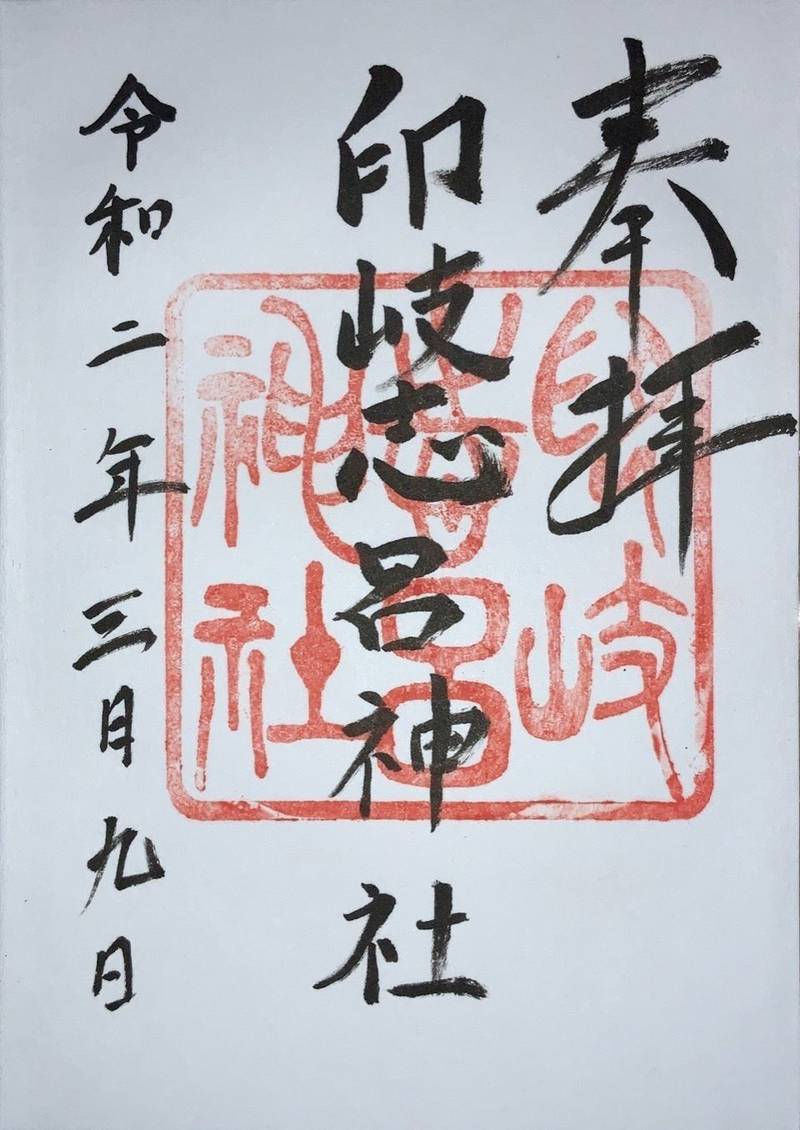 奉拝
印岐志呂神社
令和二年三月九日
印岐
志呂
神社